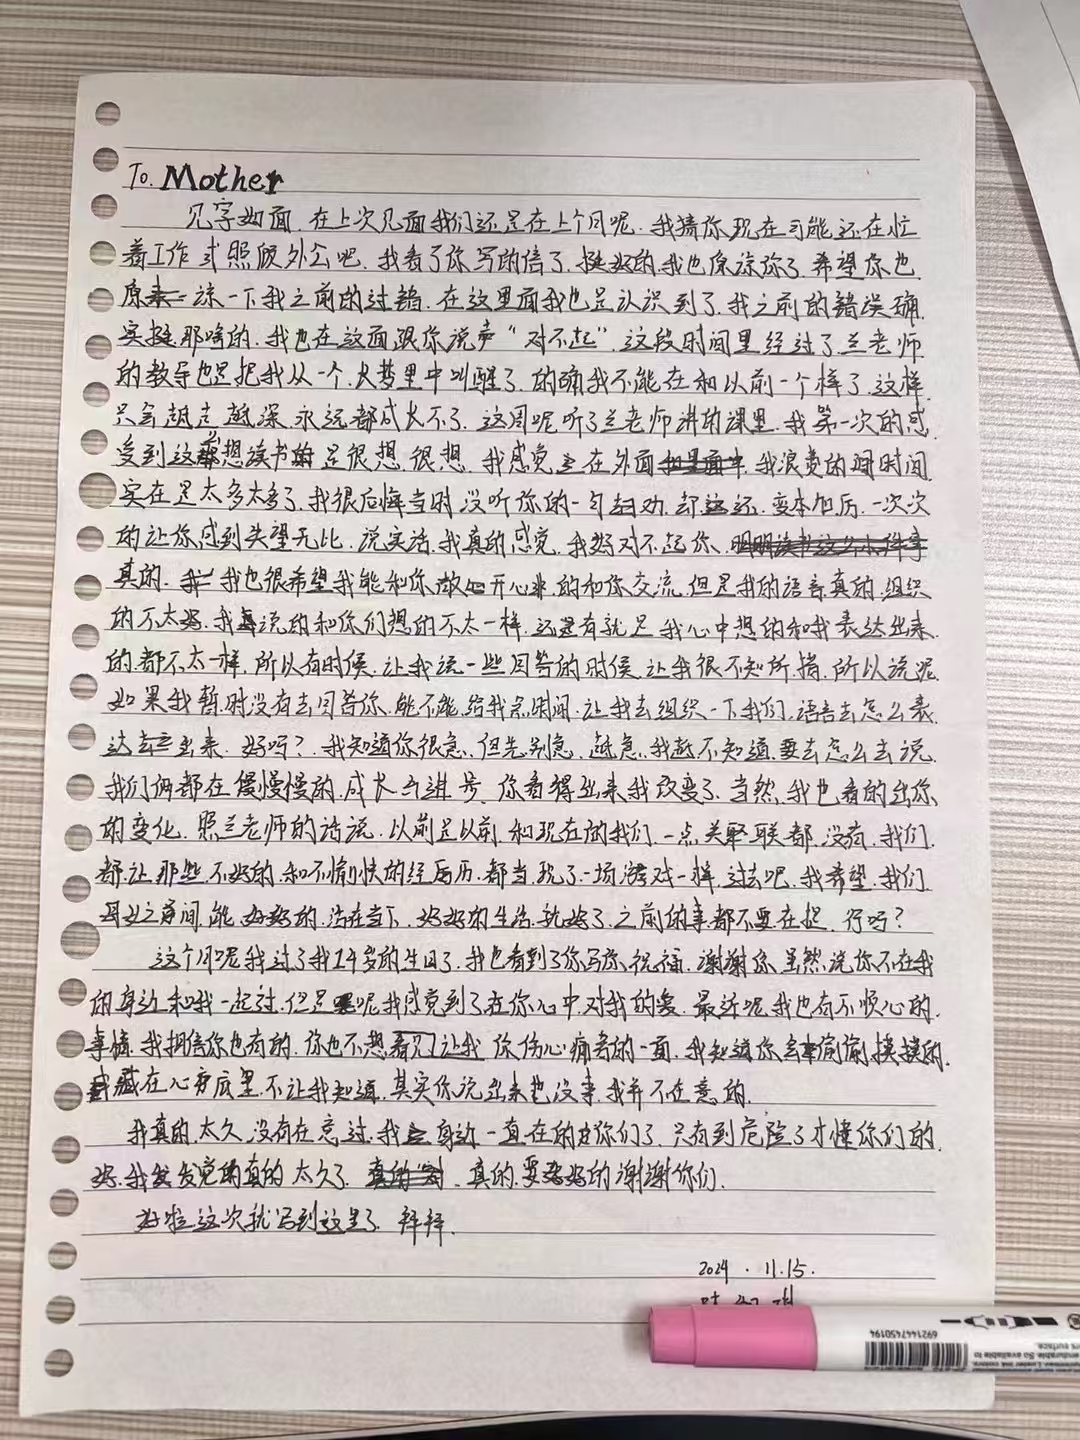 To. Mother
见字如面,在上次见面我们还是在上个月呢,我猜你现在可能还在忙
着工作或照顾外公吧,我看了你写的信了,挺好的,我也原谅你了,希望你也
原谅一下我之前的过错,在这里面我也是认识到了,我之前的错误确
实挺那啥的,我也在这面跟你说声"对不起",这段时间里经过了兰老师
的教导也是把我从一个,大梦里中叫醒了,的确我不能在和以前一个样了,这样
只会越走越深,永远都成长不了,这周呢听了兰老师讲的课里,我第一次的感
受到这想读书的是很想,很想,我感觉在外面,我浪费的时间
实在是太多太多了,我很后悔当时没听你的一句劝,却还,变本加厉,一次次
的让你感到失望无比,说实话,我真的感觉,我好对不起你,
真的,我也很希望我能和你敞开心的和你交流,但是我的语言真的,组织
的不太好,我说的和你们想的不太一样,还有就是我心中想的和我表达出来
的,都不太一样,所以有时候,让我说一些回答的时候,让我很不知所措,所以说呢
如果我暂时没有去回答你,能不能,给我点时间,让我去组织一下我们,语言去怎么表
达出来,好吗?我知道你很急,但先别急,越急,我越不知道,要去怎么去说,
我们俩都在慢慢的,成长与进步,你看得出来我改变了,当然,我也看的出你
的变化,照兰老师的话说,以前是以前,和现在的我们,一点关联都,没有,我们
都让那些,不好的,和不愉快的经历,都当玩了一场游戏一样,过去吧,我希望,我们
母女之间,能,好好的,活在当下,好好的生活,就好了,之前的事都不要在提,行吗?
这个月呢我过了我14岁的生日了,我也看到了你写你祝福,谢谢你,虽然说你不在我
的身边和我一起过,但是呢我感觉到了在你心中对我的爱,最近呢,我也有不顺心的,
事情,我相信你也有的,你也不想让我,你伤心痛苦的一面,我知道你会偷偷,摸摸的,
藏在心底里,不让我知道,其实你说出来也没事,我并不在意的,
我真的,太久,没有在意过,我身边一直在的你们了,只有到危险了才懂你们的
好,我发觉的真的太久了,真的,要好好的谢谢你们,
好啦这次就写到这里了,拜拜,
2024.11.15.
6921447450194